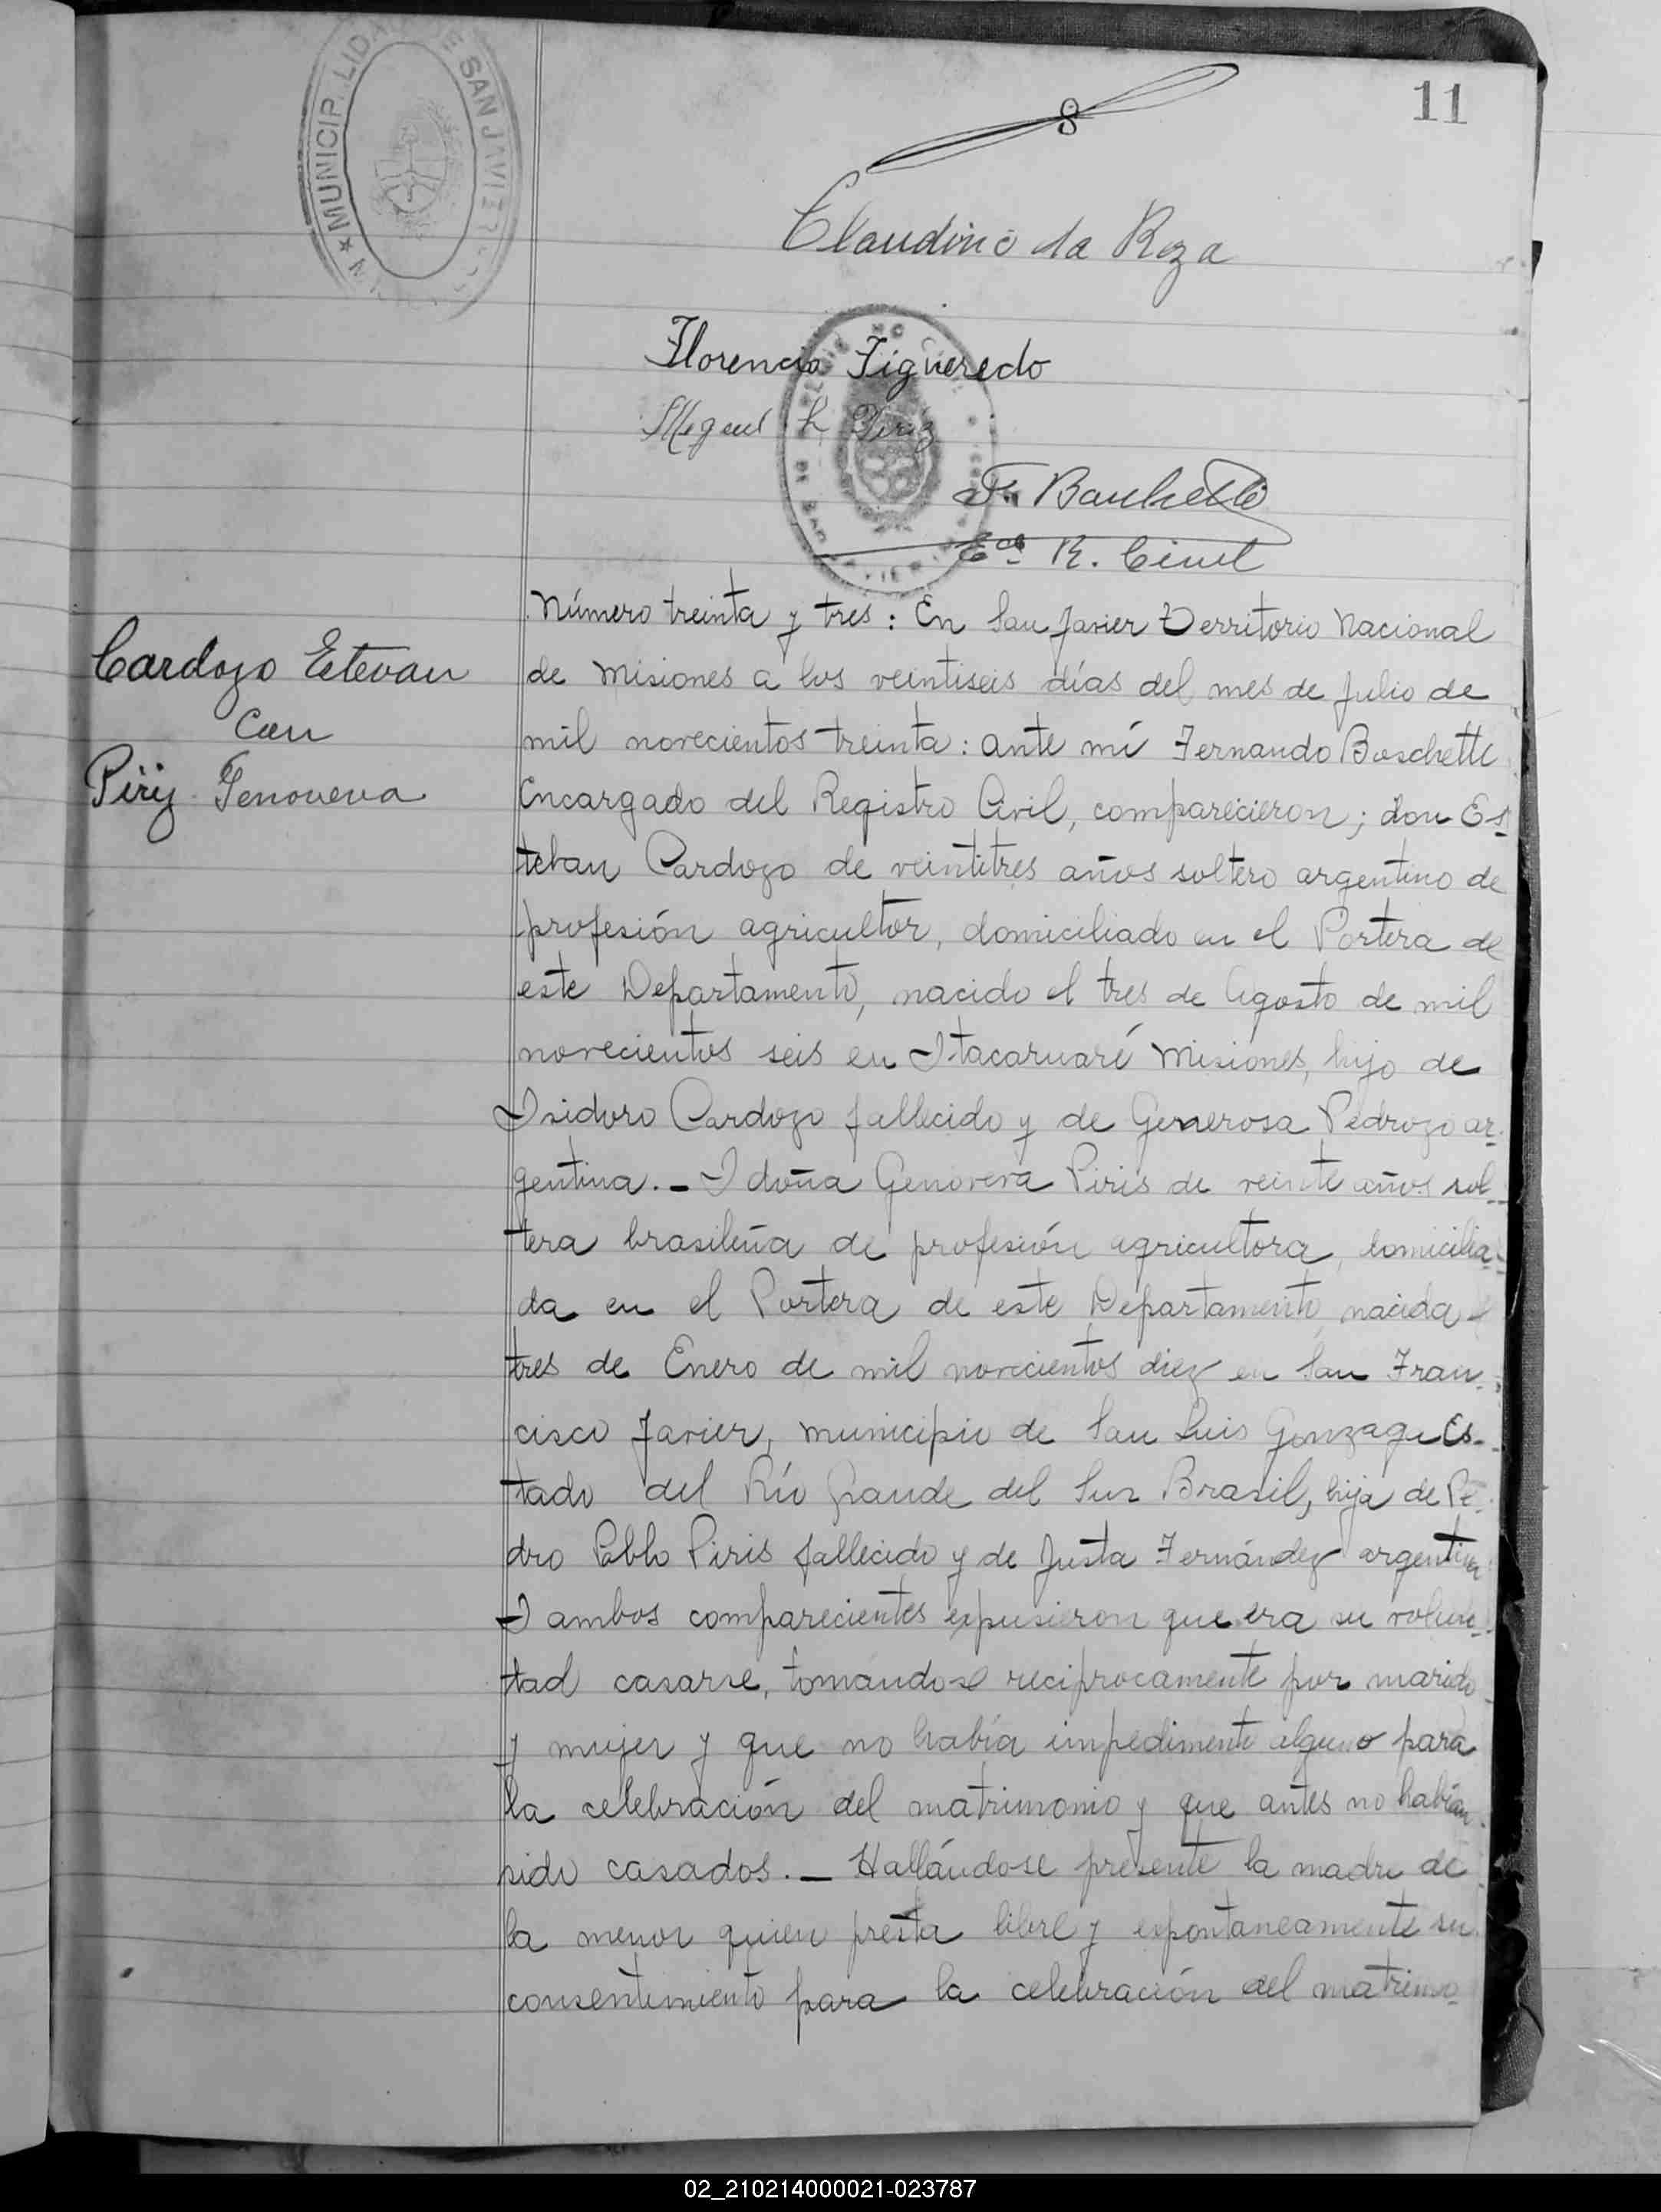 MUNICIPALIDAD DE SAN JAVIER
11
8
Claudino da Roza
Florencio Figueredo
Miguel
F. Boschetti
R. Civil
Número treinta y tres: En San Javier Territorio Nacional
de Misiones a los veintiseis días del mes de Julio de
mil novecientos treinta: ante mí Fernando Boschetti
Cardozo Estevan
con
Piriz Genoveva
Encargado del Registro Civil, comparecieron; don Es-
teban Cardozo de veintitres años soltero argentino de
profesión agricultor, domiciliado en el Portera de
este Departamento, nacido el tres de Agosto de mil
novecientos seis en Itacaruaré Misiones, hijo de
Isidoro Cardozo fallecido y de Generosa Pedrozo ar-
gentina.- I doña Genoveva Piris de veinte años sol-
tera brasileña de profesión agricultora, domicilia-
da en el Portera de este Departamento, nacida el
tres de Enero de mil novecientos diez en San Fran-
cisco Javier, municipio de San Luis Gonzaga Es-
tado del Río Grande del Sur Brasil, hija de Pe-
dro Pablo Piris fallecido y de Justa Fernández argentina
I ambos comparecientes expusieron que era su volun-
tad casarse, tomándose reciprocamente por marido
y mujer y que no había impedimento alguno para
la celebración del matrimonio y que antes no habían
sido casados.- Hallándose presente la madre de
la menor quien presta libre y espontaneamente su
consentimiento para la celebración del matrimo-
02_210214000021-023787